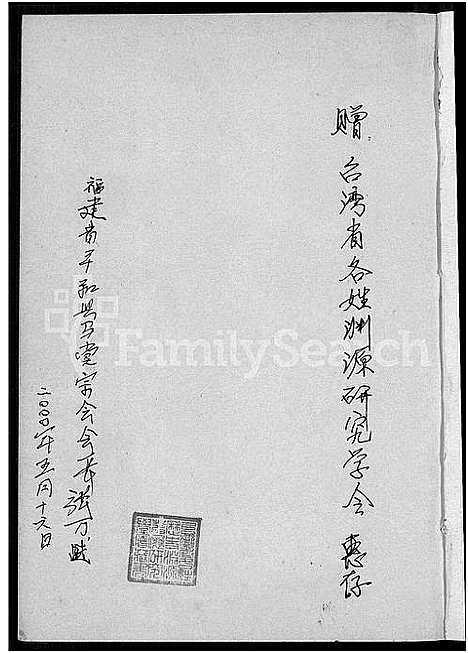 赠:台湾省各姓渊源研究学会 惠存
福建省平和县马堂宗会会长张万
二〇〇〇年五月十六日
FamilySearch